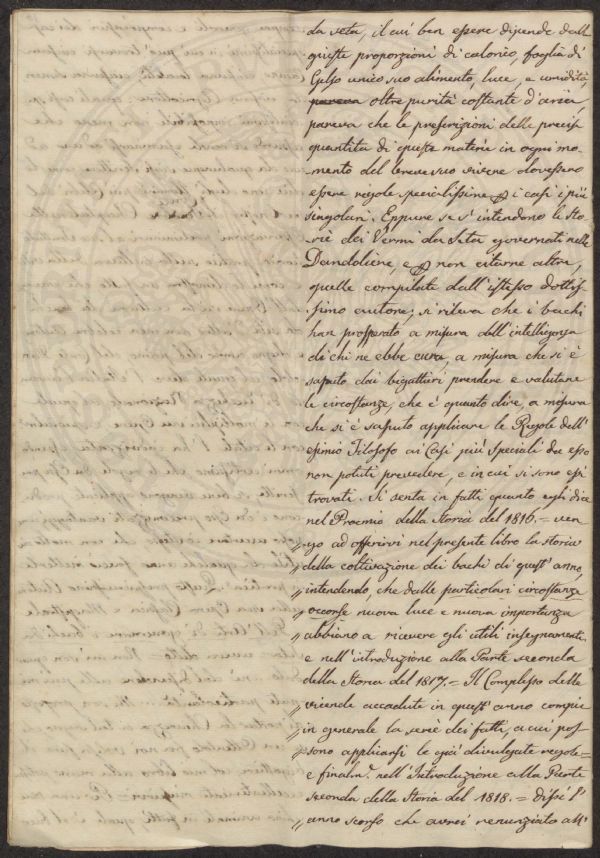 da seta, il cui ben essere dipende dalle
giuste proporzioni di calorico, foglia di
Gelso unico suo alimento, luce, e umidità,
pareva oltre purità costante d'aria,
pareva che le prescrizioni delle precise
quantità di queste materie in ogni mo-
mento del breve suo vivere dovessero
essere regole specialissime p i casi i più
singolari. Eppure se s'intendono le Sto-
rie dei Vermi da Seta governati nelle
Dandoliere, e p non citarne altra,
quelle compilate dall'istesso dottis-
simo autore; si rileva che i bachi
han prosperato a misura dell'intelligenza
di chi ne ebbe cura, a misura che si è
saputo dai bigattieri prendere e valutare
le circostanze, che è quanto dire, a misura
che si è saputo applicare le Regole dell'
esimio Filosofo ai Casi più speciali da esso
non potuti prevedere, e in cui si sono essi
trovati. Si senta in fatti quanto egli dice
nel Proemio della Storia del 1816. = ven-
„ go ad offerirvi nel presente libro la storia
„ della coltivazione dei bachi di quest'anno,
„ intendendo, che dalle particolari circostanze
„ occorse nuova luce e nuova importanza
„ abbiano a ricevere gli utili insegnamenti
e nell'introduzione alla Parte seconda
della Storia del 1817. = Il Complesso delle
„ vicende accadute in quest'anno compie
„ in generale la serie dei fatti, a cui pos-
„ sono applicarsi le già divulgate regole =
e finalm. nell'Introduzione alla Parte
seconda della Storia del 1818. = Dissi l'
„ anno scorso che avrei renunziato all'